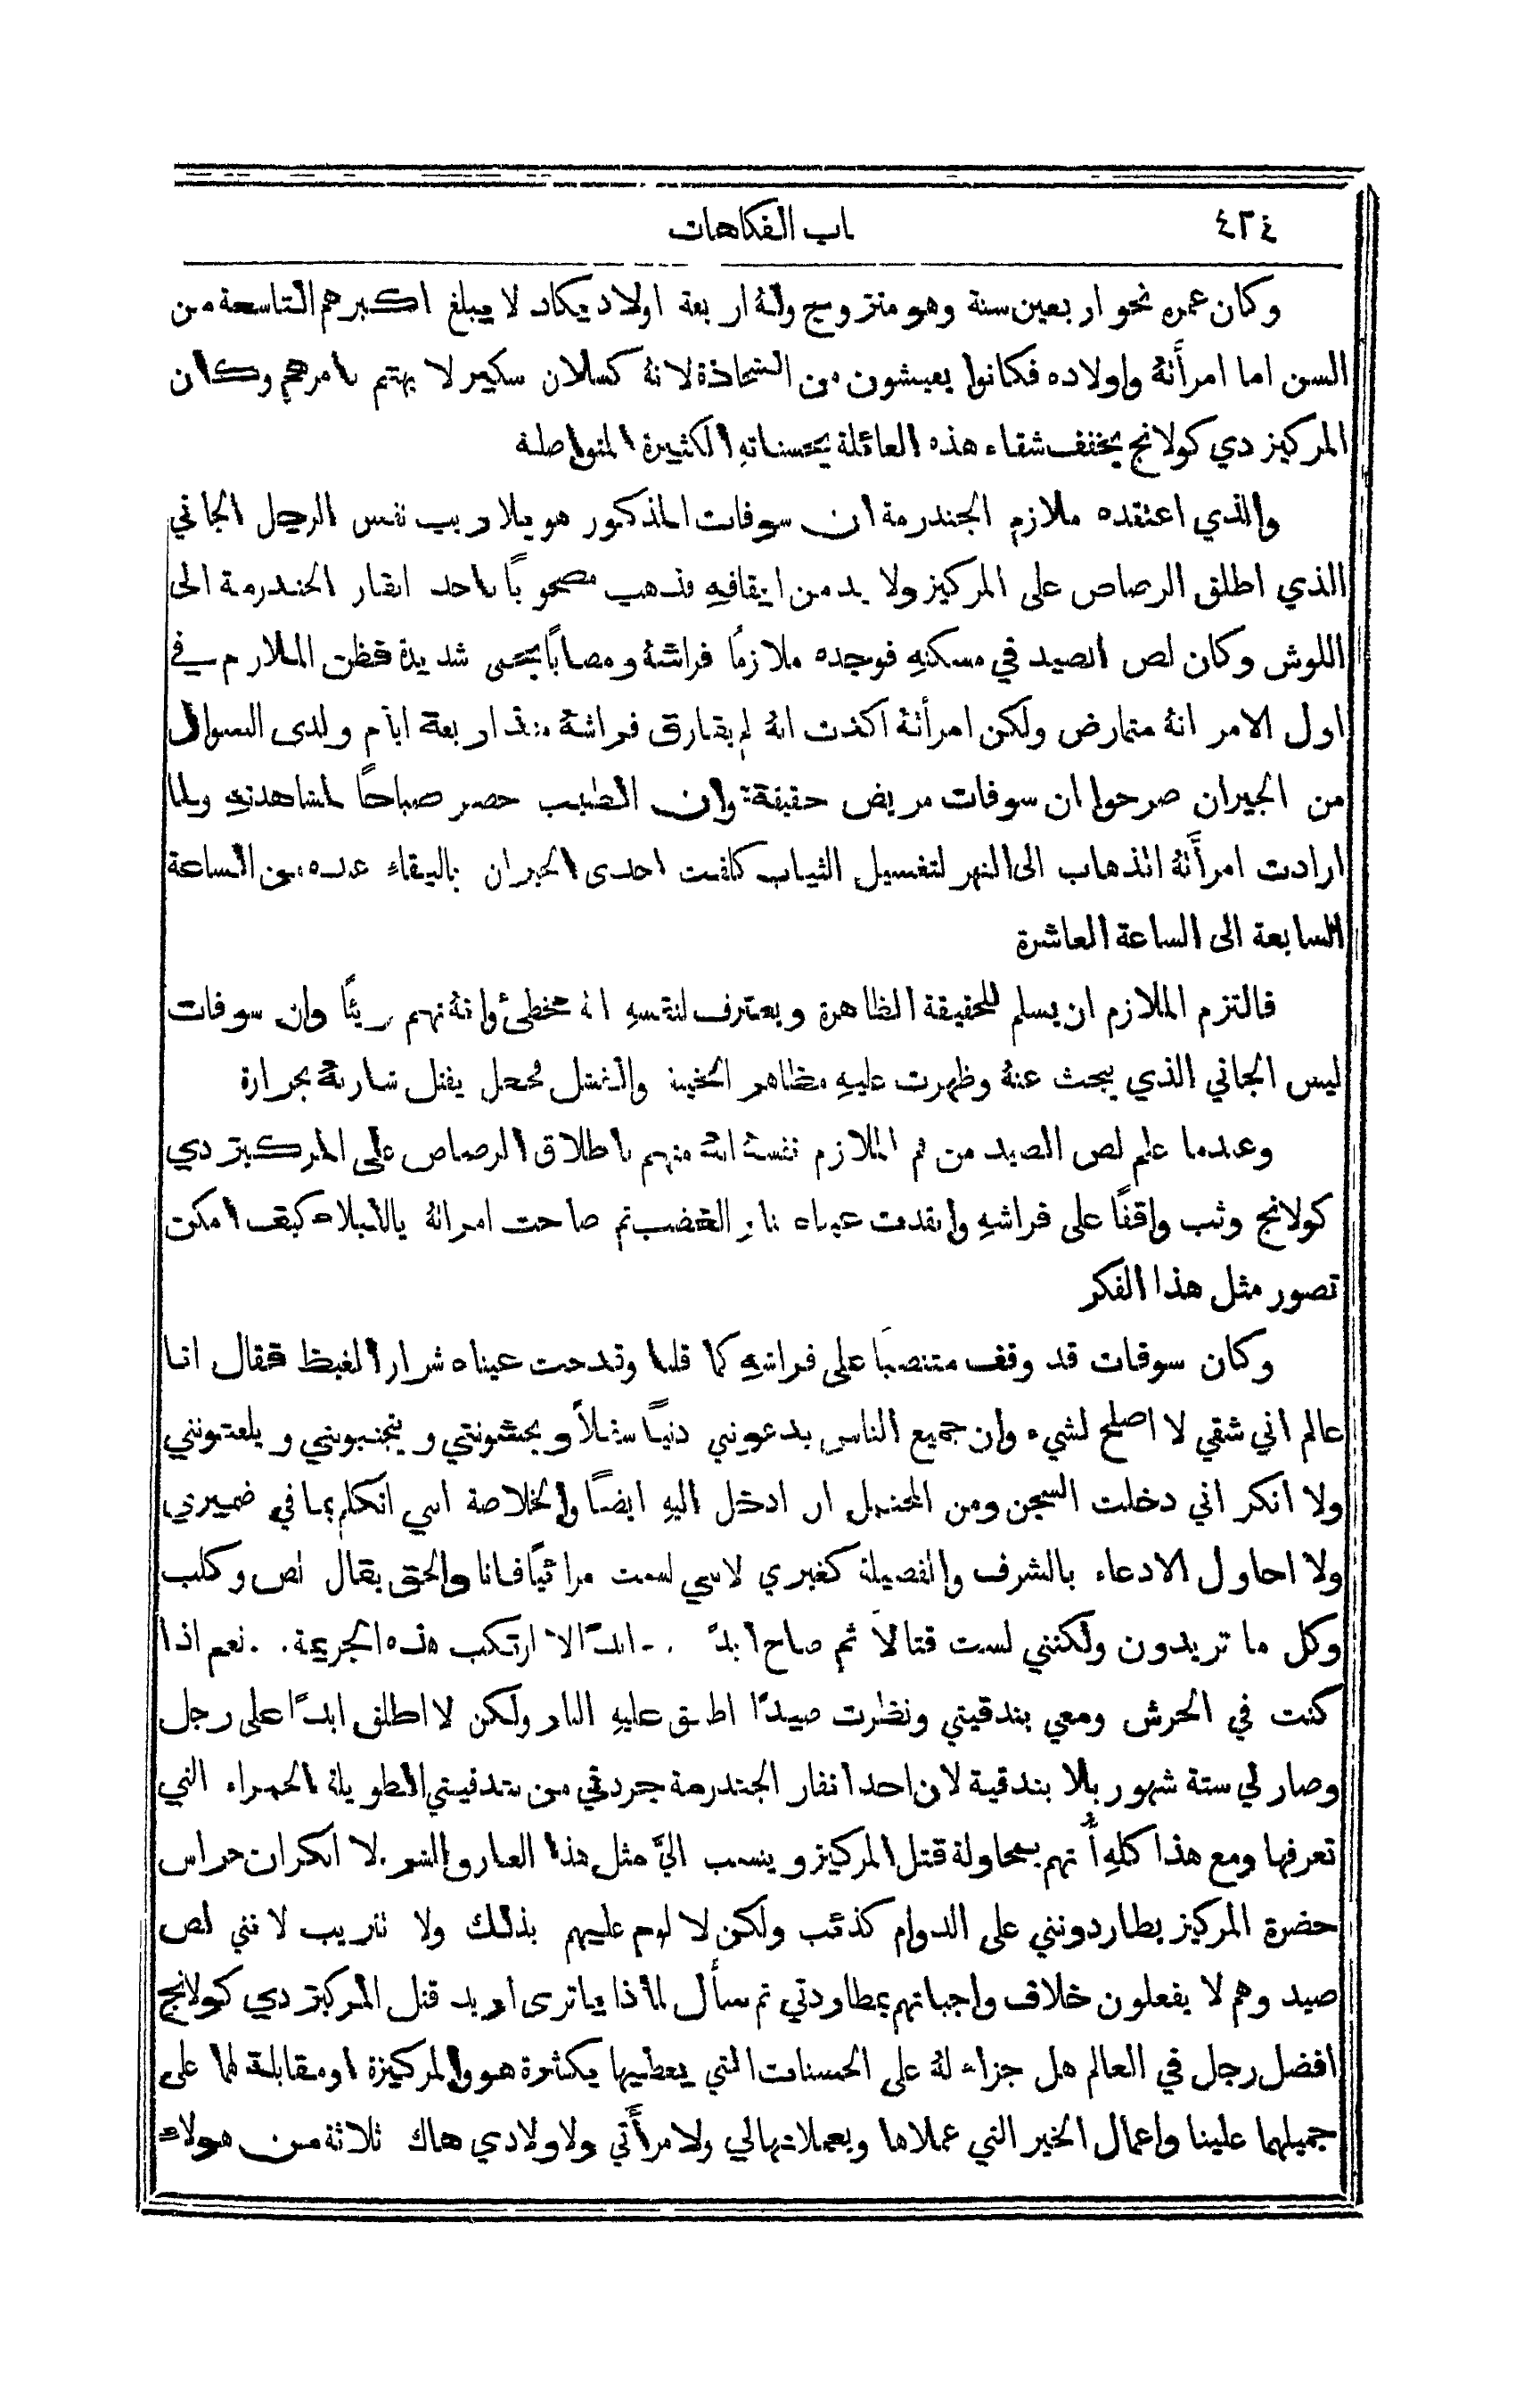 ٤٢٤
باب الفكاهات
وكان عمره نحو اربعين سنة وهو متزوج ولهُ اربعة اولاد يكاد لا يبلغ اكبرهم التاسعة من
السن اما امرأَتهُ واولاده فكانوا يعيشون من الشحاذة لانهُ كسلان سكير لا يهتم بامرهم وكان
المركيز دي كولانج يخفف شقاء هذه العائلة بحسناتهِ الكثيرة المتواصلة
والذي اعتقده ملازم الجندرمة ان سوفات المذكور هو بلا ريب نفس الرجل الجاني
الذي اطلق الرصاص على المركيز ولا بد من ايقافهِ فذهب مصحوبًا باحد انفار الجندرمة الى
اللوش وكان لص الصيد في مسكنهِ فوجده ملازمًا فراشهُ ومصابًا بحمى شديدة فظن الملازم في
اول الامر انهُ متمارض ولكن امرأتهُ اكدت انهُ لم يفارق فراشهُ منذ اربعة ايام ولدى السوال
من الجيران صرحوا ان سوفات مريض حقيقةً وان الطبيب حضر صباحًا لمشاهدتهِ ولما
ارادت امرأَتهُ الذهاب الى النهر لتغسيل الثياب كلفت احدى الجيران بالبقاء عنده من الساعة
السابعة الى الساعة العاشرة
فالتزم الملازم ان يسلم للحقيقة الظاهرة ويعترف لنفسهِ انهُ مخطئ وانهُ يتهم بريئًا وان سوفات
ليس الجاني الذي يبحث عنهُ وظهرت عليهِ مظاهر الخيبة والفشل فجعل يفتل شاربهُ بحرارة
وعندما علم لص الصيد من فم الملازم نفسهُ انهُ متهم باطلاق الرصاص على المركيز دي
كولانج وثب واقفًا على فراشهِ واتقدت عيناه نار الغضب ثم صاحت امرأتهُ ياللبلاء كيف امكن
تصور مثل هذا الفكر
وكان سوفات قد وقف منتصبًا على فراشهِ كما قلنا وقدحت عيناه شرار الغيظ فقال انا
عالم اني شقي لا اصلح لشيء وان جميع الناس يدعونني دنيًّا سافلاً ويخشونني ويتجنبونني ويلعنونني
ولا انكر اني دخلت السجن ومن المحتمل ان ادخل اليهِ ايضًا والخلاصة اني اتكلم بما في ضميري
ولا احاول الادعاء بالشرف والفضيلة كغيري لاني لست مرائيًا فانا والحق يقال لص وكلب
وكل ما تريدون ولكنني لست قتالاً ثم صاح ابدًا . . ابدًا لا ارتكب هذه الجريمة. . نعم اذا
كنت في الحرش ومعي بندقيتي ونظرت صيدًا اطلق عليهِ النار ولكن لا اطلق ابدًا على رجل
وصار لي ستة شهور بلا بندقية لان احد انفار الجندرمة جردني من بندقيتي الطويلة الحمراء التي
تعرفها ومع هذا كلهِ أُتهم بمحاولة قتل المركيز وينسب اليَّ مثل هذا العار والشر. لا انكر ان حراس
حضرة المركيز يطاردونني على الدوام كذئب ولكن لا لوم عليهم بذلك ولا تثريب لانني لص
صيد وهم لا يفعلون خلاف واجباتهم بمطاردتي ثم سأل لماذا يا ترى اريد قتل المركيز دي كولانج
افضل رجل في العالم هل جزاء لهُ على الحسنات التي يعطيها بكثرة هو والمركيزة او مقابلة لهما على
جميلهما علينا واعمال الخير التي عملاها ويعملانها لي ولامرأَتي ولاولادي هاك ثلاثة من هولاء